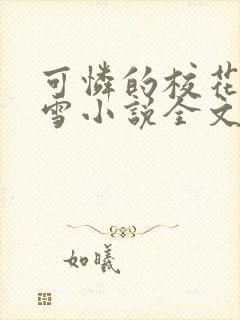 可憐的校花
雪小說全文
如曦